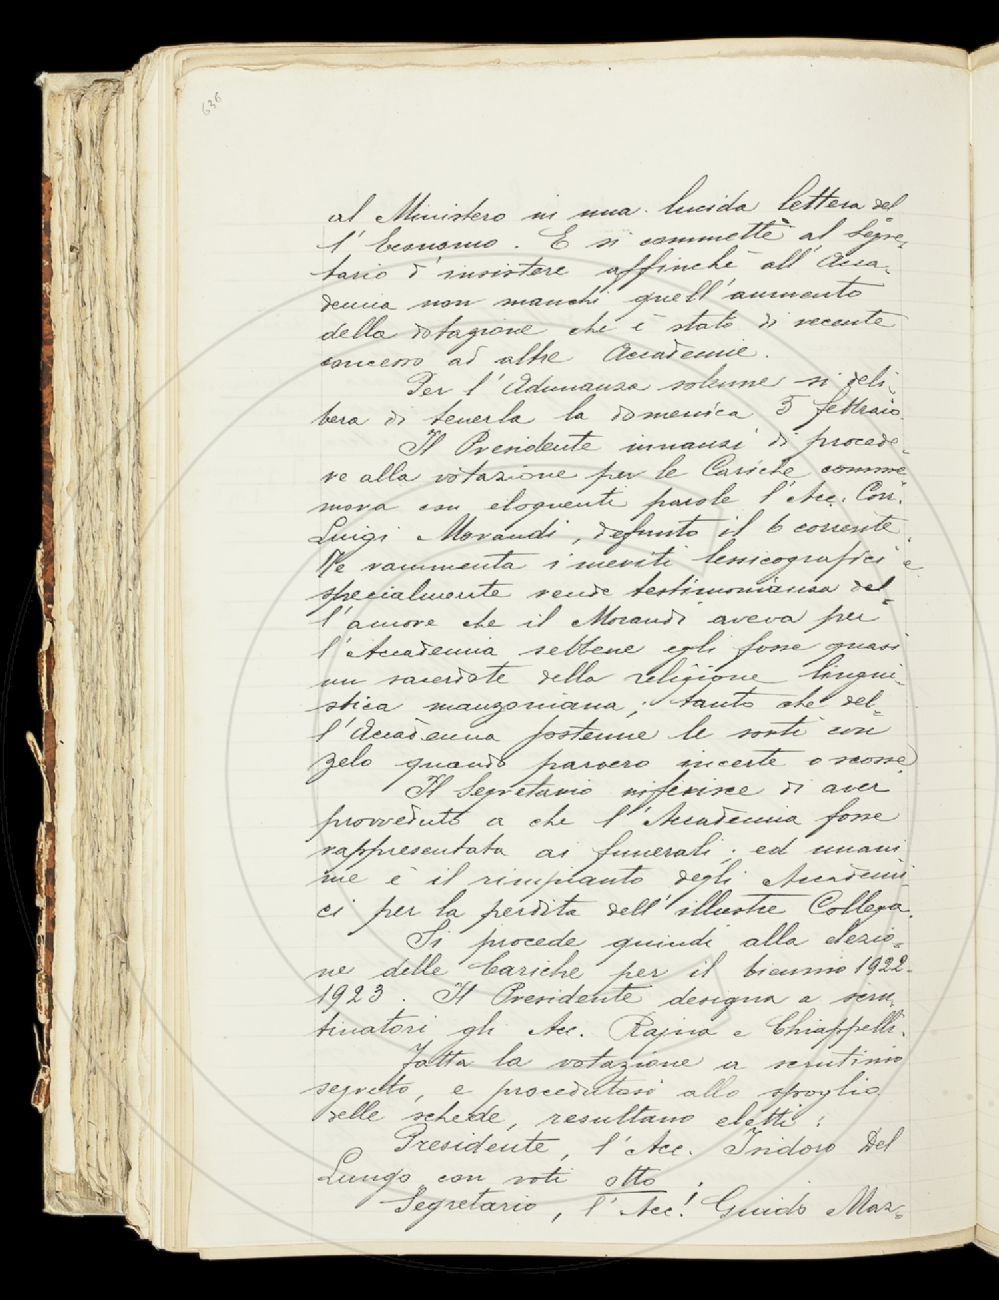 636
al Ministero in una lucida lettera del
l'Economo. E si commette al Segre-
tario d'insistere affinchè all'Acca-
demia non manchi quell'aumento
della dotazione che è stato di recente
concesso ad altre Accademie.
Per l'Adunanza solenne si deli-
bera di tenerla la domenica 5 febbraio
Il Presidente innanzi di procede-
re alla votazione per le Cariche comme-
mora con eloquenti parole l'Acc. Corr.
Luigi Morandi, defunto il 6 corrente.
Ne rammenta i meriti lessicografici e
specialmente rende testimonianza del-
l'amore che il Morandi aveva per
l'Accademia sebbene egli fosse quasi
un sacerdote della religione lingui-
stica manzoniana; tanto che del-
l'Accademia sostenne le sorti con
zelo quando parvero incerte o scosse
Il Segretario riferisce di aver
provveduto a che l'Accademia fosse
rappresentata ai funerali; ed unani
me è il rimpianto degli Accademi
ci per la perdita dell'illustre Collega.
Si procede quindi alla elezio-
ne delle Cariche per il biennio 1922-
1923. Il Presidente designa a scru-
tinatori gli Acc. Rajna e Chiappelli.
Fatta la votazione a scrutinio
segreto, e procedutosi allo spoglio
delle schede, resultano eletti:
Presidente, l'Acc. Isidoro Del
Lungo con voti otto.
Segretario, l'Acc. Guido Maz-